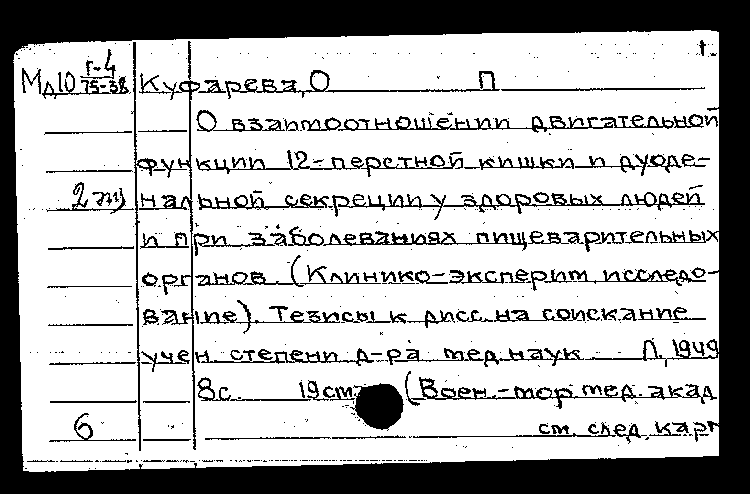 1.
Мд10 Г-4/75-38 Куфарева, О П
О взаимоотношении двигательной
функции 12-перстной кишки и дуоде-
2 эк нальной секреции у здоровых людей
и при заболеваниях пищеварительных
органов. (Клинико-эксперим. исследо-
вание). Тезисы к дисс. на соискание
учен. степени д-ра мед. наук Л, 1949
8с. 19см (Воен.-мор. мед. акад
6 см. след. карт